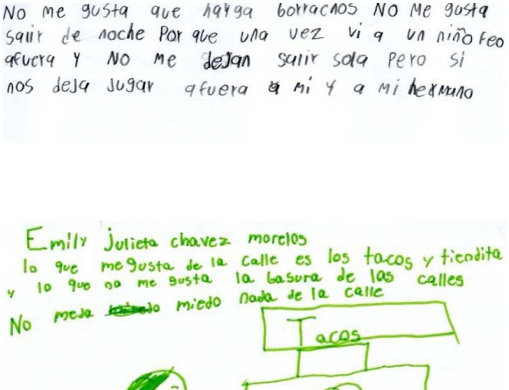 No me gusta que hayga borrachos No Me gusta
salir de noche Por que una vez vi a un niño feo
afuera y No me dejan salir sola pero si
nos deja jugar afuera a mi y a mi hermano
Emily julieta chavez morelos
lo que me gusta de la calle es los tacos y tiendita
y lo que no me gusta la basura de las calles
No meda miedo nada de la calle
Tacos